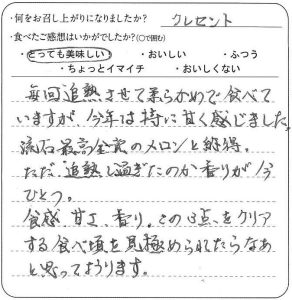 ・何をお召し上がりになりましたか？ クレセント
・食べたご感想はいかがでしたか？(○で囲む)
・とっても美味しい！ ・おいしい ・ふつう
・ちょっとイマイチ ・おいしくない
毎回追熟させて柔らかめで食べて
いますが、今年は特に甘く感じました。
流石最高金賞のメロンと納得。
ただ、追熟し過ぎたのか香りが今
ひとつ。
食感、甘さ、香り。この3点をクリア
する食べ頃を見極められたらなあ
と思っております。